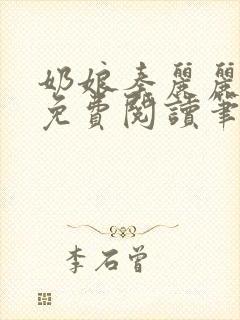 奶娘奉麗麗
免費閱讀筆
李石曾